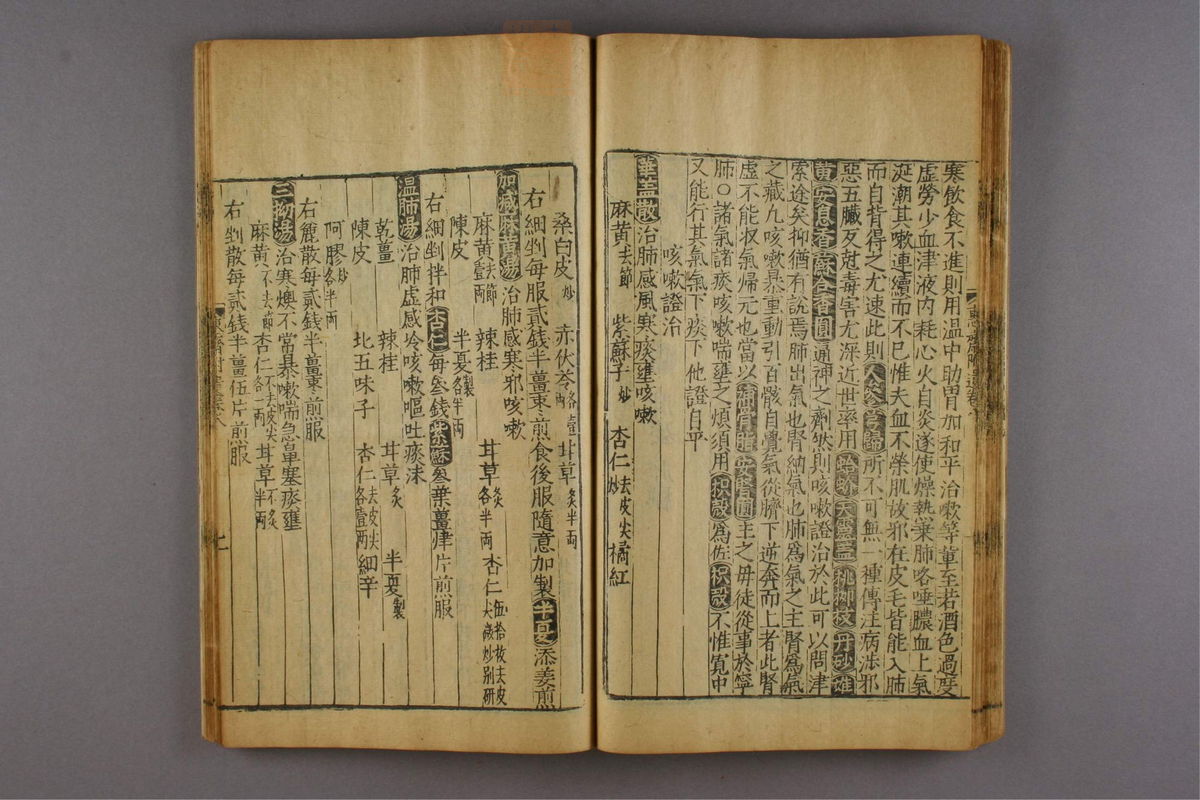 寒飲食不進則用温中助胃加和平治嗽等藥至若酒色過度
虛勞少血津液内耗心火自炎遂使燥熱乗肺咯唾膿血上氣
涎潮其嗽連續而不已惟夫血不榮肌故邪在皮毛皆能入肺
而自背得之尤速此則人參芎歸所不可無一種傳注病涉邪
惡五臟反尅毒害尤深近世率用蛤蚧天靈蓋桃柳枝丹砂雄
黄安息香蘇合香圓通神之劑然則咳嗽證治於此可以問津
索途矣抑猶有說焉肺出氣也腎納氣也肺爲氣之主腎爲氣
之藏凡咳嗽暴重動引百骸自覺氣從臍下逆奔而上者此腎
虛不能收氣歸元也當以補骨脂安腎圓主之毋徒從事於寧
肺○諸氣諸痰咳嗽喘壅之煩須用枳殼爲佐枳殼不惟寛中
又能行其氣氣下痰下他證自平
咳嗽證治
華盖散治肺感風寒痰壅咳嗽
麻黄去節 紫蘇子炒 杏仁炒去皮尖 橘紅
桑白皮炒 赤伏苓各壹兩 甘草炙半兩
右細剉每服貳錢半薑棗煎食後服隨意加製半夏添姜煎
加減麻黄湯治肺感寒邪咳嗽
麻黄去節 辣桂 甘草炙各半兩 杏仁伍拾枚去皮尖炒別研
陳皮 半夏製各半兩
右細剉拌和杏仁每叄錢紫蘇叄葉薑肆片煎服
温肺湯治肺虛感冷咳嗽嘔吐痰沫
乾薑 辣桂 甘草炙 半夏製
陳皮 北五味子 杏仁去皮尖各壹兩 細辛
阿膠炒各半兩
右麄散每貳錢半薑棗煎服
三拗湯治寒燠不常暴嗽喘急鼻塞痰壅
麻黄不去節 杏仁不去皮尖各一兩 甘草不炙半兩
右剉散每貳錢半薑伍片煎服